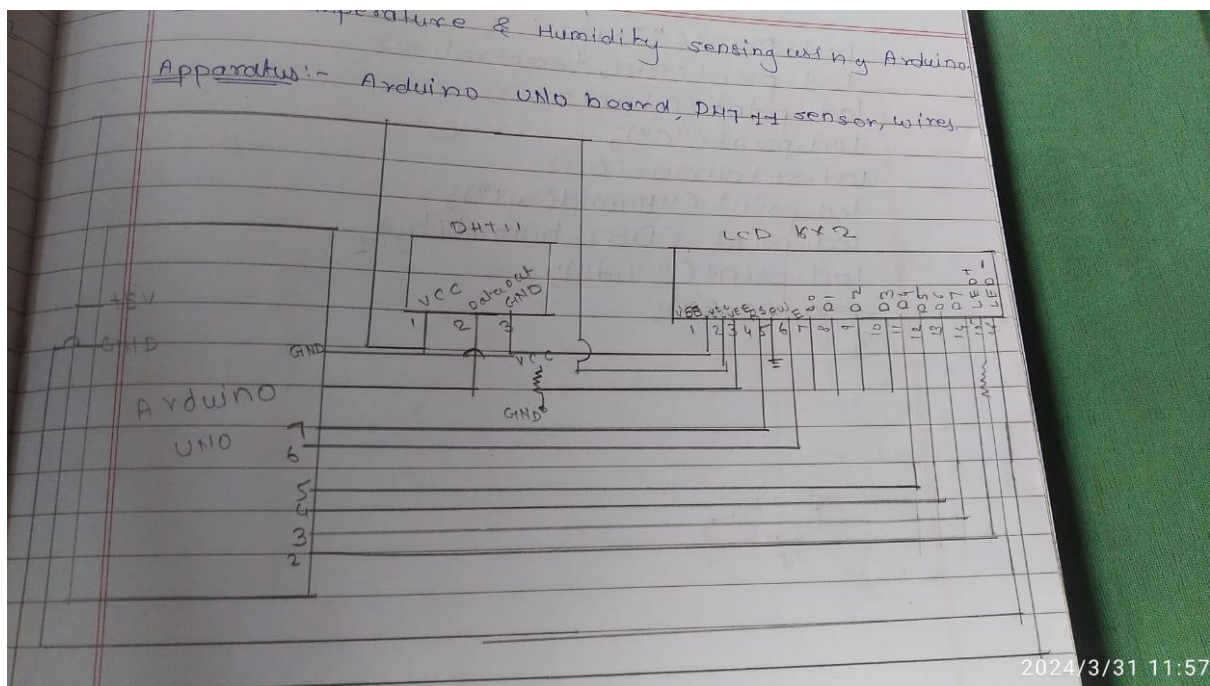 & Humidity sensing using Arduino
Apparatus:- Arduino UNO board, DHT 11 sensor, wires
DHT11
LCD 16×2
VCC
Data out
GND
1 2 3
VSS VCC VEE RS R/W E D0 D1 D2 D3 D4 D5 D6 D7 LED+ LED-
1 2 3 4 5 6 7 8 9 10 11 12 13 14
+5V
GND
GND
VCC
GND
Arduino
UNO
7
6
5
4
3
2
2024/3/31 11:57